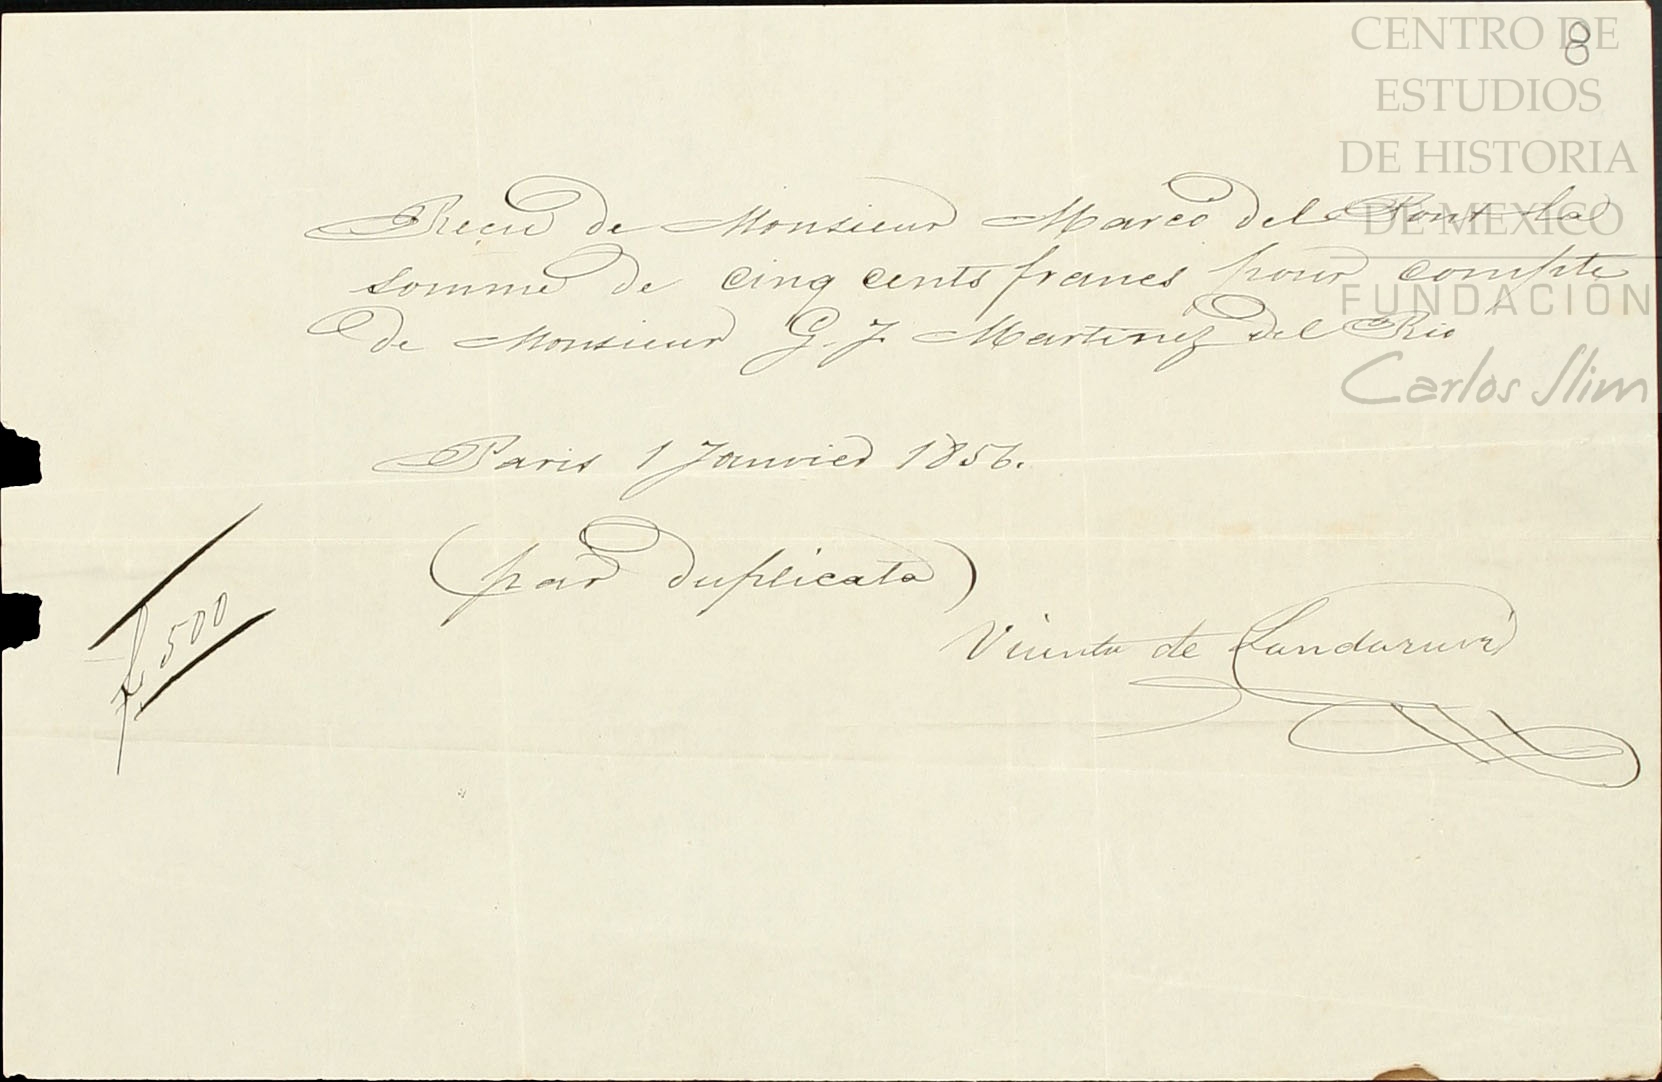 8
CENTRO DE
ESTUDIOS
DE HISTORIA
DE MEXICO
FUNDACIÓN
Carlos Slim
Reçu de Monsieur Marco del Pont la
somme de cinq cents francs pour compte
de Monsieur G. J. Martinez del Rio
Paris 1 Janvier 1856.
(par duplicata)
f 500
Vicente de